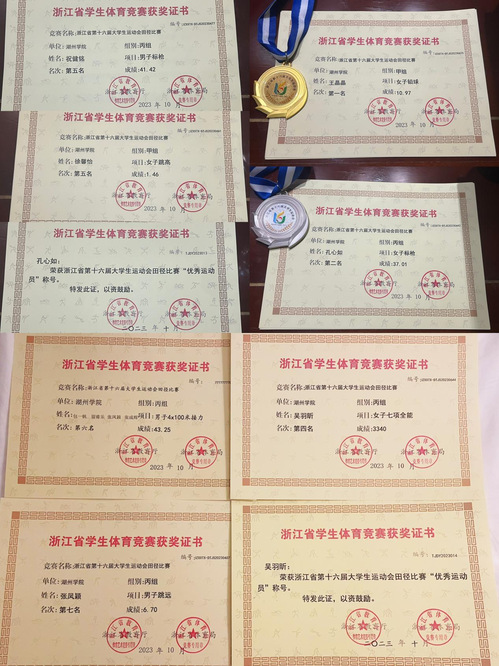 浙江省学生体育竞赛获奖证书
编号:
竞赛名称:浙江省第十六届大学生运动会田径比赛
单位:湖州学院 组别:丙组
姓名:祝健铭 项目:男子标枪
名次:第五名 成绩:41.42
2023 年 10 月
编号:
竞赛名称:浙江省第十六届大学生运动会田径比赛
单位:湖州学院 组别:甲组
姓名:徐馨怡 项目:女子跳高
名次:第五名 成绩:1.46
2023 年 10 月
浙江省学生体育竞赛获奖证书
编号:
孔心如:
荣获浙江省第十六届大学生运动会田径比赛“优秀运动
员”称号。
特发此证，以资鼓励。
二〇二三 年 十 月
浙江省学生体育竞赛获奖证书
编号:
竞赛名称:浙江省第十六届大学生运动会田径比赛
单位:湖州学院 组别:甲组
姓名:王晶晶 项目:女子铅球
名次:第一名 成绩:10.97
2023 年 10 月
浙江省学生体育竞赛获奖证书
编号:
竞赛名称:浙江省第十六届大学生运动会田径比赛
单位:湖州学院 组别:丙组
姓名:孔心如 项目:女子标枪
名次:第二名 成绩:37.01
2023 年 10 月
浙江省学生体育竞赛获奖证书
编号:
竞赛名称:浙江省第十六届大学生运动会田径比赛
单位:湖州学院 组别:丙组
姓名: 项目:男子4x100米接力
名次:第六名 成绩:43.25
2023 年 10 月
浙江省学生体育竞赛获奖证书
编号:
竞赛名称:浙江省第十六届大学生运动会田径比赛
单位:湖州学院 组别:丙组
姓名:吴羽昕 项目:女子七项全能
名次:第四名 成绩:3340
2023 年 10 月
浙江省学生体育竞赛获奖证书
编号:
竞赛名称:浙江省第十六届大学生运动会田径比赛
单位:湖州学院 组别:丙组
姓名:张凤颖 项目:男子跳远
名次:第七名 成绩:6.70
2023 年 10 月
浙江省学生体育竞赛获奖证书
编号:TJBY2023014
吴羽昕:
荣获浙江省第十六届大学生运动会田径比赛“优秀运动
员”称号。
特发此证，以资鼓励。
二〇二三 年 十 月